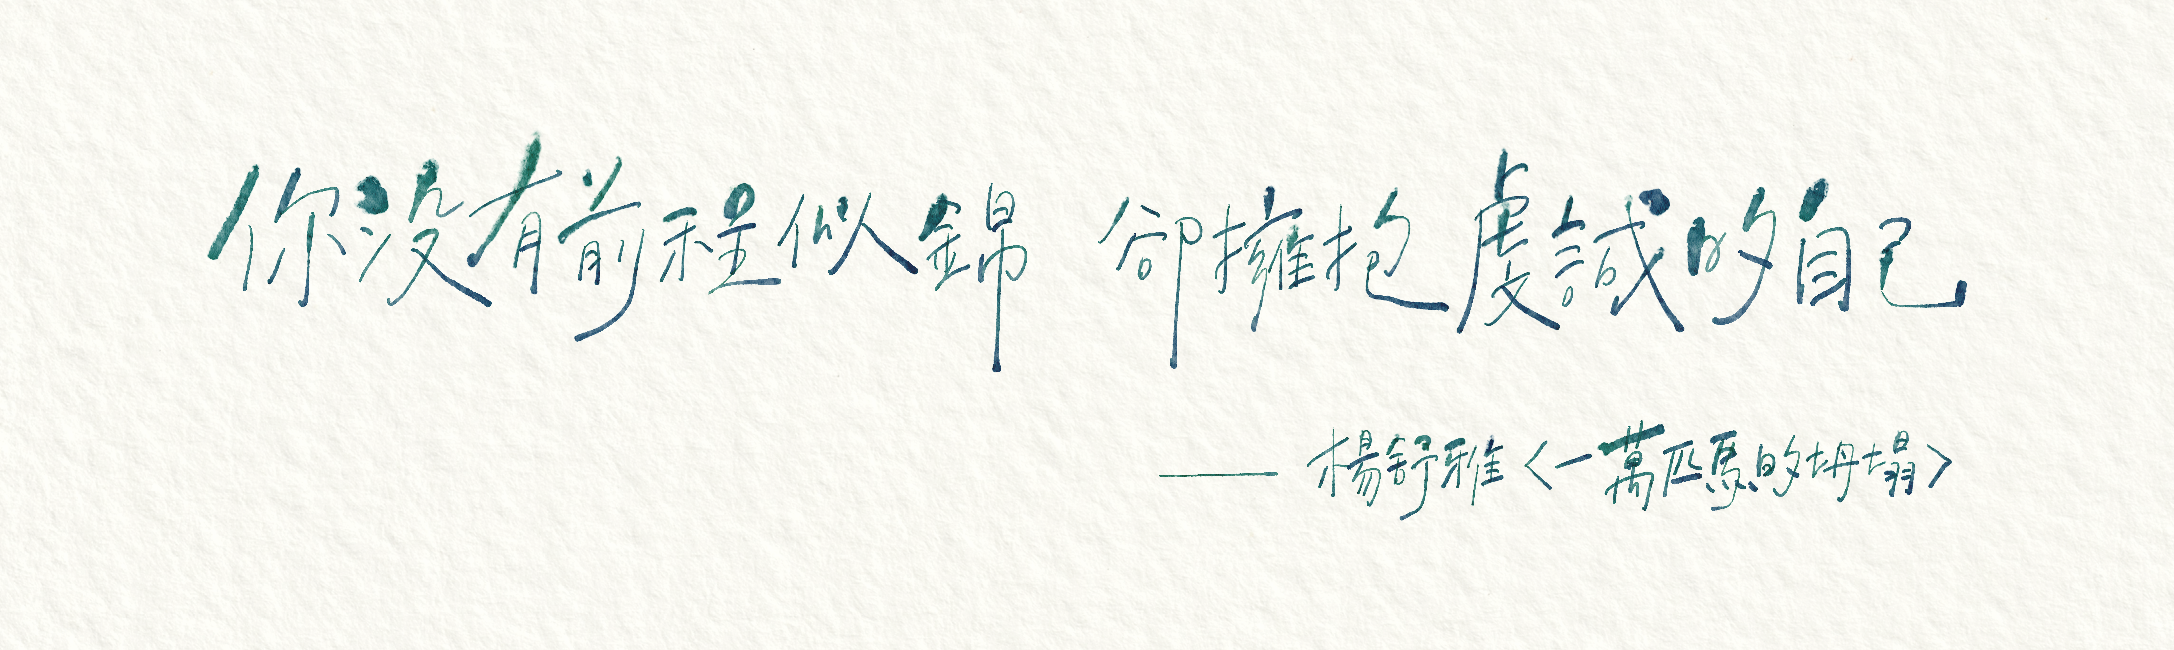 你沒有前程似錦 卻擁抱虔誠的自己
—— 楊舒雅〈一萬匹馬的坍塌〉